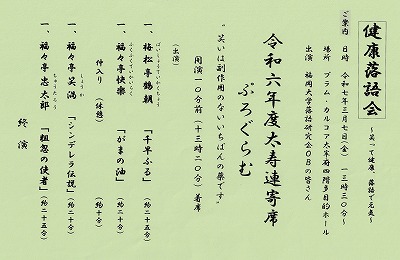 健康落語会
～笑って健康、落語で元気～
ご案内
日時 令和七年三月七日(金) 一三時三〇分～
場所 プラム・カルコア太宰府四階多目的ホール
出演 福岡大学落語研究会OBの皆さん
令和六年度太寿連寄席
ぷろぐらむ
"笑いは副作用のないいちばんの薬です"
開演一〇分前(十三時二〇分)着席
(出演)
一、梅松亭鶴朝 「千早ふる」 (約二十分)
ばいしょうていかくちょう
一、福々亭快樂 「がまの油」 (約二十分)
ふくふくていかいらく
仲入り (休憩) (約十分)
一、福々亭笑満 「シンデレラ伝説」 (約二十分)
一、福々亭忠太郎 「粗忽の使者」 (約二十五分)
ちゅうたろう
終演